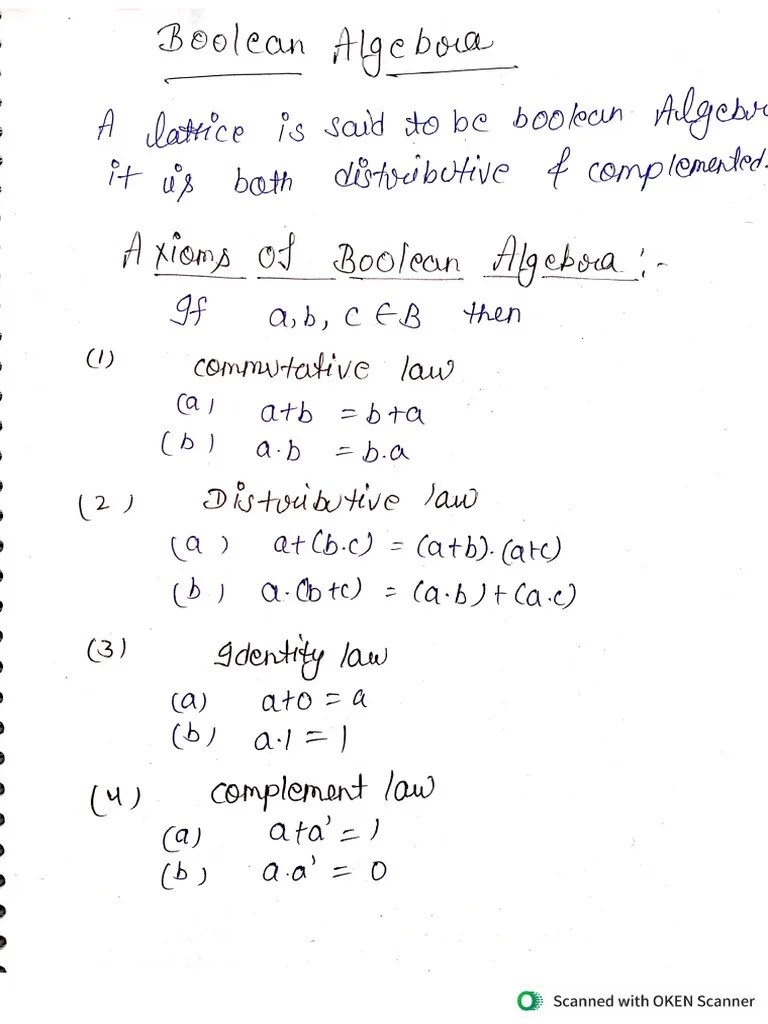 Boolean Algebra
A lattice is said to be boolean Algebr
it is both distributive & complemented.
Axioms of Boolean Algebra :-
If a, b, c ∈ B then
(1) Commutative law
(a) a+b = b+a
(b) a·b = b·a
(2) Distributive law
(a) a+(b·c) = (a+b)·(a+c)
(b) a·(b+c) = (a·b)+(a·c)
(3) Identity law
(a) a+0 = a
(b) a·1 = 1
(4) Complement law
(a) a+a' = 1
(b) a·a' = 0
Scanned with OKEN Scanner